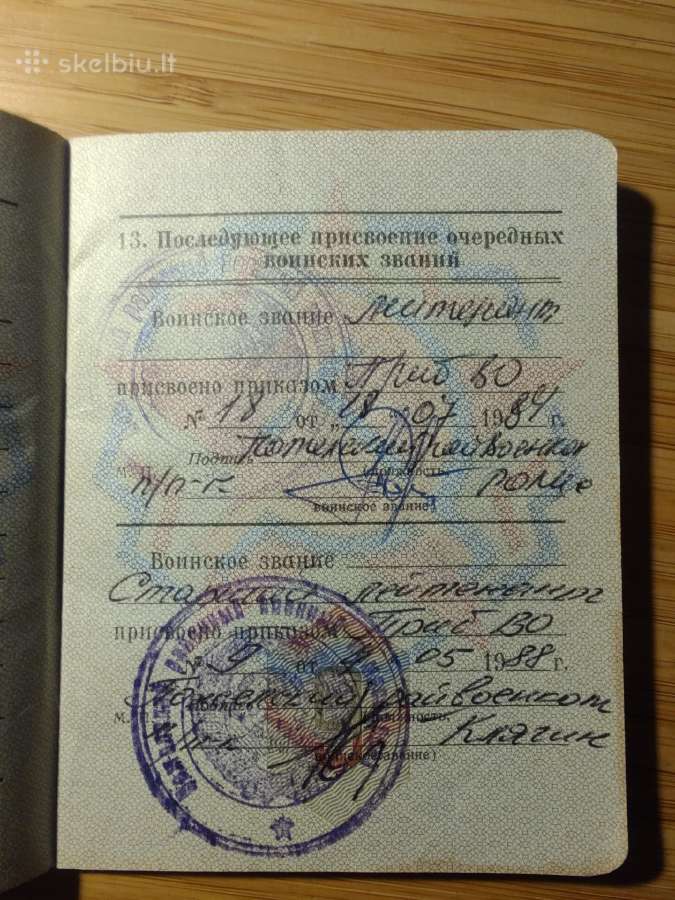 skelbiu.lt
13. Последующее присвоение очередных
воинских званий
Воинское звание лейтенант
присвоено приказом Приб ВО
№ 18 от „18 07 1984 г.
Подпись райвоенком
(должность
п/п-к
воинское звание)
Воинское звание
Старший лейтенант
присвоено приказом Приб ВО
№ 9 от 9 05 1988 г.
райвоенком
М.
Клягин
районный военный